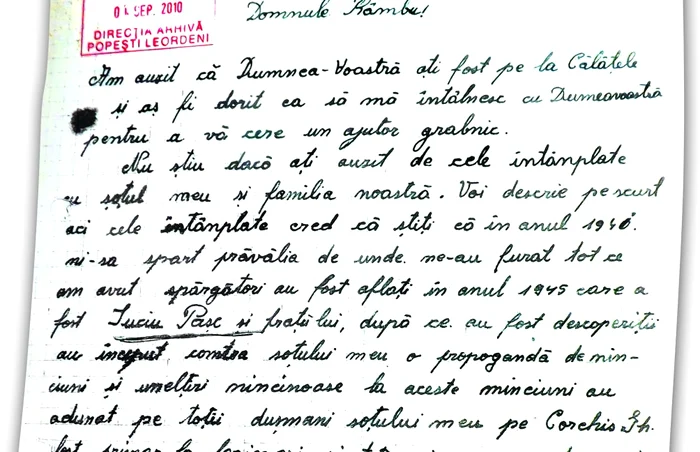 01. SEP. 2010
DIRECȚIA ARHIVĂ
POPEȘTI LEORDENI
Domnule Râmbu!
Am auzit că Dumnea-Voastră ați fost pe la Călățele
și aș fi dorit ca să mă întâlnesc cu Dumeavoastră
pentru a vă cere un ajutor grabnic.
Nu știu dacă ați auzit de cele întâmplate
cu soțul meu si familia noastră. Voi descrie pe scurt
aci cele întâmplate cred că știți că în anul 1940
ni-sa spart prăvălia de unde ne-au furat tot ce
am avut spărgători au fost aflați în anul 1945 care a
fost Suciu Pasc și frații lui, după ce au fost descoperiții
au început contra soțului meu o propogandă de min-
ciuni și uneltiri mincinoase la aceste minciuni au
adunat pe toții dușmani soțului meu pe Corchis Gh.
fost primar la